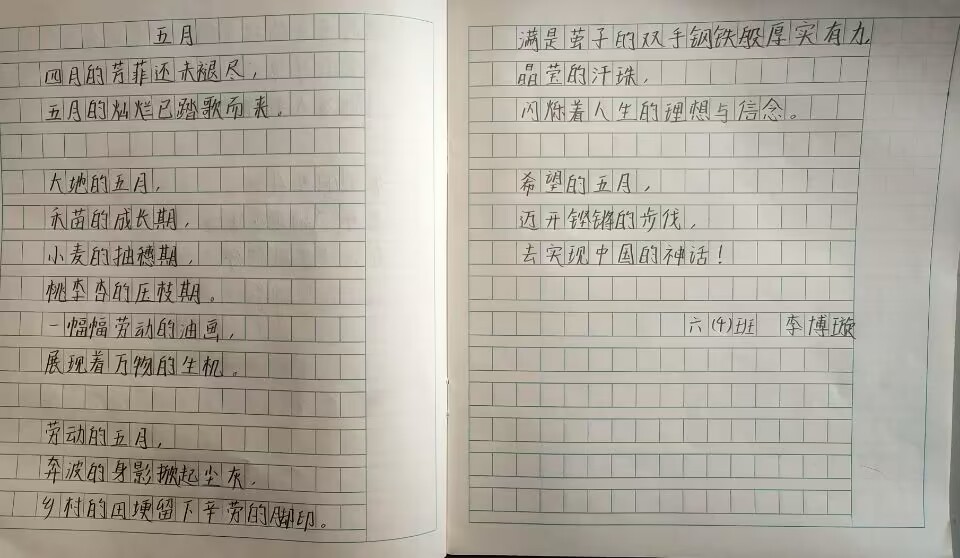 五月
四月的芳菲还未褪尽，
五月的灿烂已踏歌而来。
大地的五月，
禾苗的成长期，
小麦的抽穗期，
桃李杏的压枝期。
一幅幅劳动的油画，
展现着万物的生机。
劳动的五月，
奔波的身影掀起尘灰，
乡村的田埂留下辛劳的脚印。
满是茧子的双手钢铁般厚实有力
晶莹的汗珠，
闪烁着人生的理想与信念。
希望的五月，
迈开铿锵的步伐，
去实现中国的神话！
六（4）班 李博璇